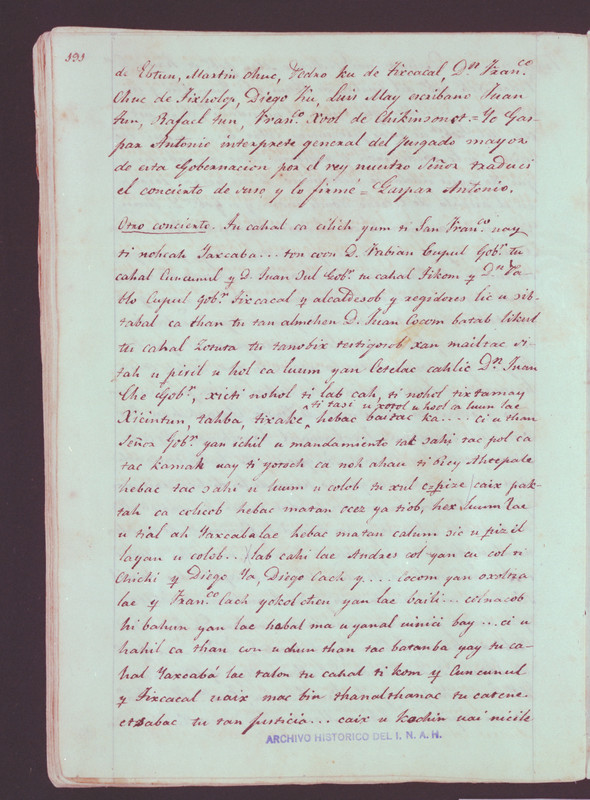 191
de Ebtun, Martin Chuc, Pedro ku de Tixcacal, D.n Fran.co
Chuc de Tixholop, Diego Tiu, Luis May escribano Juan
tun, Rafael tun, Fran.o Xool de Chikinsonot = Yo Gas-
par Antonio interprete general del Jusgado mayor
de esta Gobernacion por el rey nuestro Señor traduci
el concierto de suso y lo firmé = Gaspar Antonio.
Otro concierto. In cahal ca cilich yum ti San Fran.co uay
ti nohcah Yaxcaba... ton coon D. Fabian Cupul Gob.r tu
cahal Cuncunul y D. Juan Dul Gob.r tu cahal Tikom y D.n Pa-
blo Cupul Gob.r Tixcacal y alcaldesob y regidores lic u sib-
tabal ca than tu tan almehen D. Juan Cocom batab likul
tu cahal Zotuta tu tanobix testigosob xan mailzac si-
zah u pizil u hol ca luum yan Cetelac cahlic D.n Juan
Che Gob.r, xicti nohol ti lab cah, ti nohol tixtamay
ti tasi u xocol u hool ca luum lae
Xicintun, tahba, tixake, hebac baitac ka.... ci u than
Señor Gob.r yan ichil u mandamiento tak sahi tac pol ca
tac kamak uay ti yotoch ca noh ahau ti Rey Ahtepale
hebac tac sahi u luum u colob tu xul c=pize caix pak-
tah ca colcob hebac matan ocez ya tiob, hex luum lae
u tial ah Yaxcabalae hebac matan calum sic u pizil
layan u colob...) lab cahi lac Andres col yan cu col ti
Chichi y Diego Ya, Diego Cach y.... Cocom yan oxoltza
lae y Fran.co Cach yokol cheu yan lae baili... colnacob
hi bahun yan lae habal ma u yanal uinici bay... ci u
hahil ca than con uchun than tac batanba yay tu ca-
hal Yaxcabá lae talon tu cahal ti kom y Cuncunul
y Tixcacal uaix mac bin thanalthanac tu catene.
etsabac tu tan Justicia... caix u kachin uai nicile
ARCHIVO HISTORICO DEL I. N. A. H.